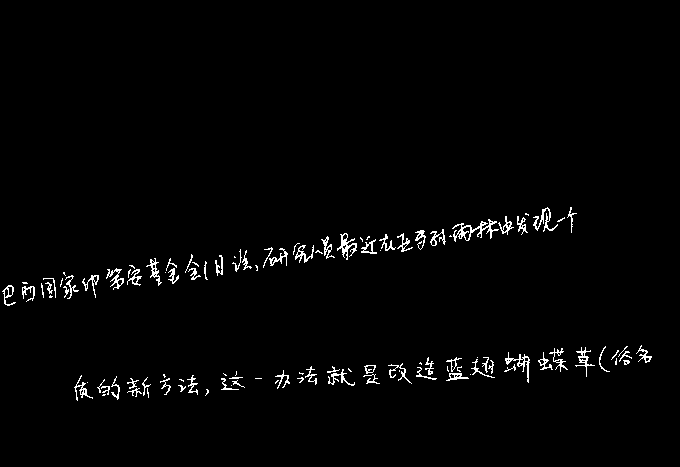 巴西国家印第安基金会1日说,研究人员最近在亚马孙雨林中发现一个
质的新方法,这一办法就是改造蓝翅蝴蝶草(俗名